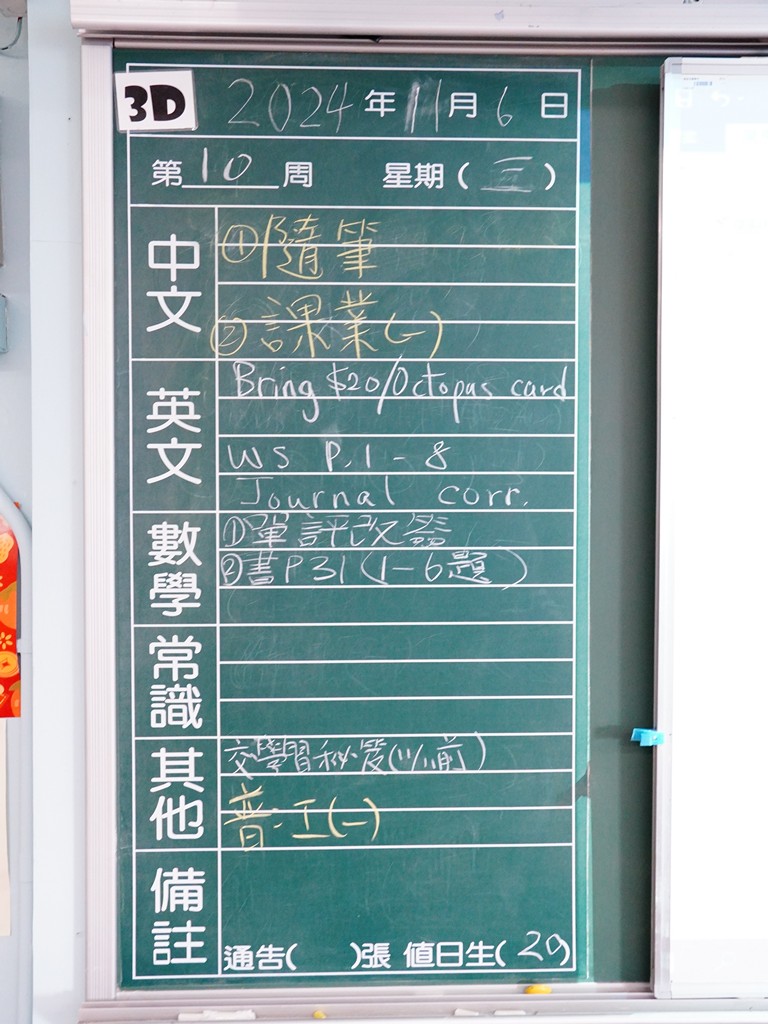 3D 2024年11月6日
第10周 星期(三)
中文
①隨筆
②課業(一)
英文
Bring $20/Octopas card
WS P.1-8
Journal corr.
數學
①單評改簽
②書P31(1-6題)
常識
其他
交學習秘笈(11/11前)
普:工(一)
備註
通告( )張 值日生(29)